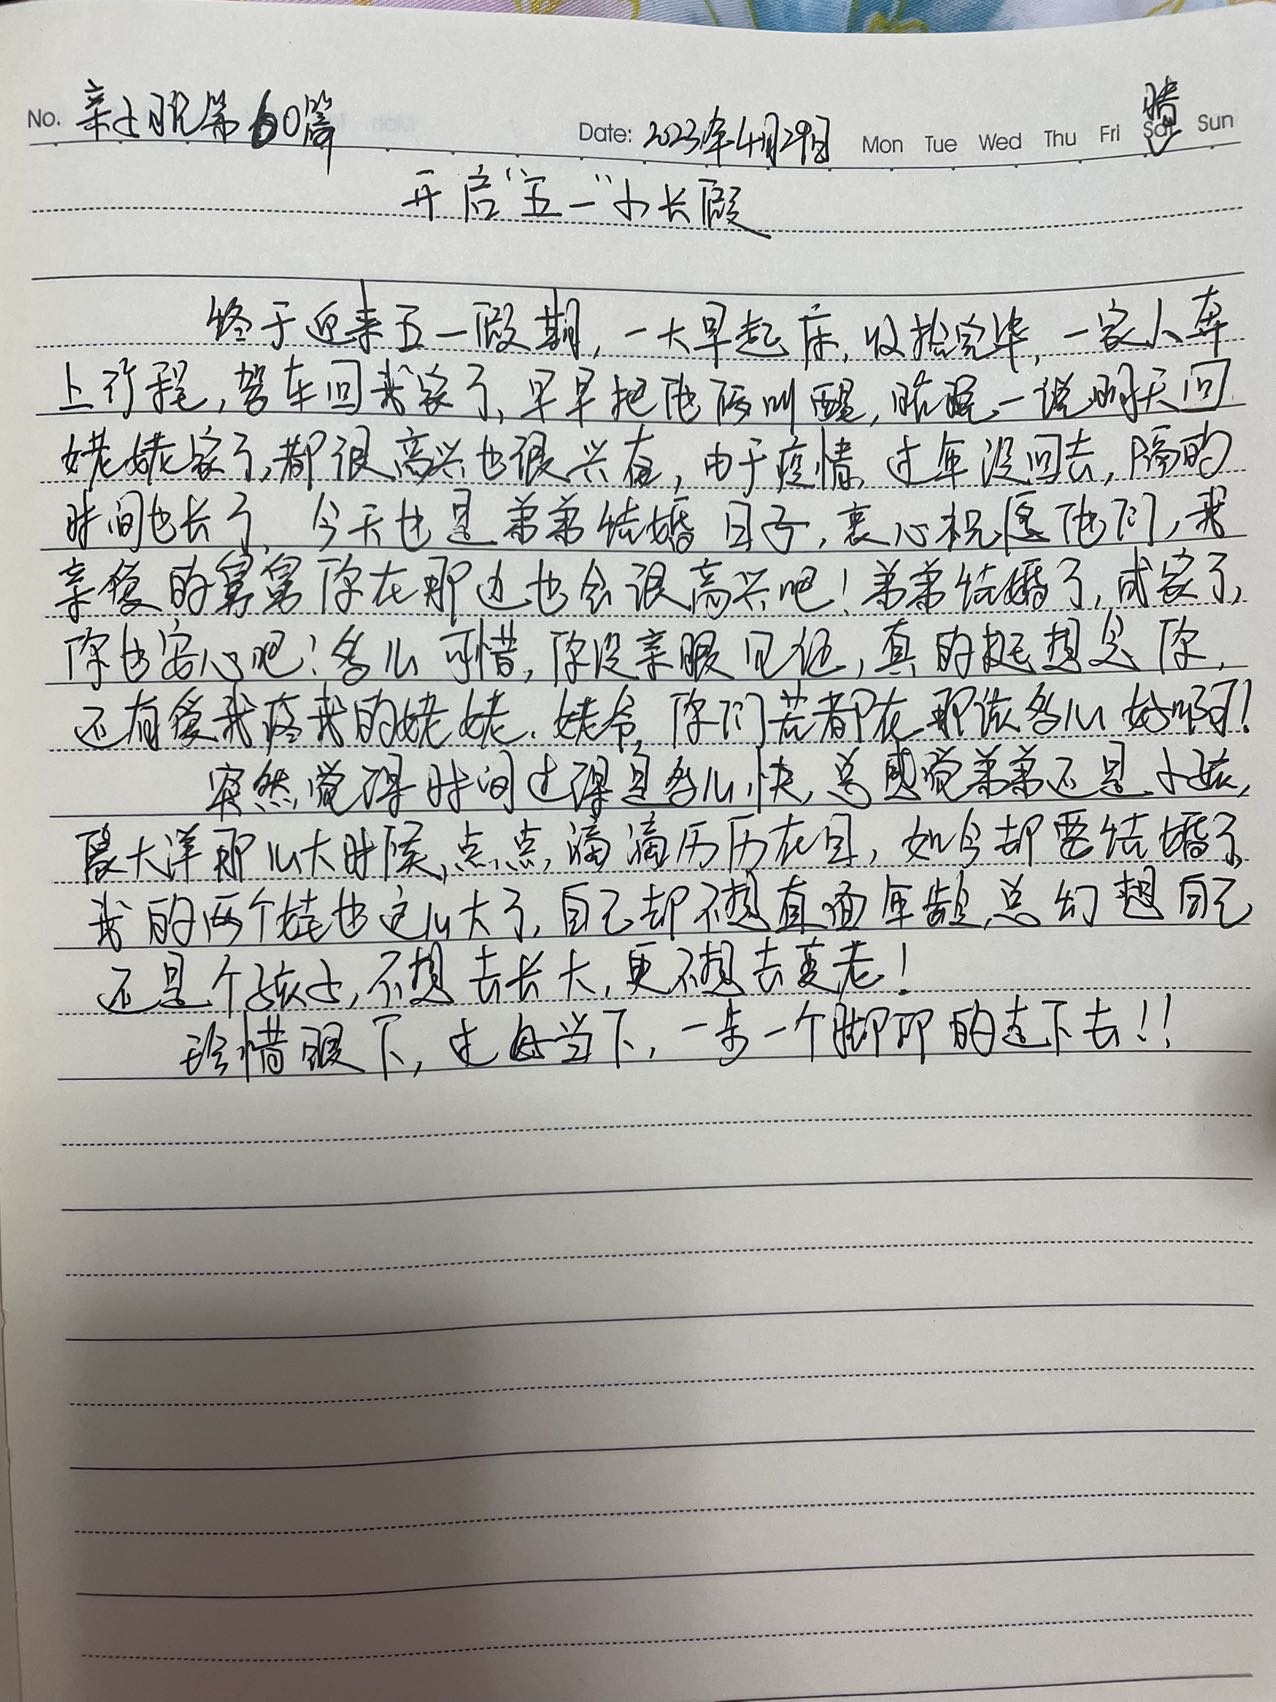 No. 亲子日记第60篇 Date: 2023年4月29日 Mon Tue Wed Thu Fri Sat Sun 晴
开启"五一"小长假
终于迎来五一假期,一大早起床,收拾完毕,一家人奔
上行程,驾车回我家了,早早把他俩叫醒,昨晚一说明天回
姥姥家了,都很高兴也很兴奋,由于疫情,过年没回去,隔的
时间也长了,今天也是弟弟结婚日子,衷心祝愿他们,我
亲爱的舅舅你在那边也会很高兴吧!弟弟结婚了,成家了,
你也安心吧!多么可惜,你没亲眼见证,真的挺想念你,
还有爱我疼我的姥姥.姥爷,你们若都在那该多么好啊!
突然觉得时间过得是多么快,总感觉弟弟还是小孩,
跟大洋那么大时候,点点滴滴历历在目,如今却要结婚了
我的两个娃也这么大了,自己却不想直面年龄,总幻想自己
还是个孩子,不想去长大,更不想去变老!
珍惜眼下,过好当下,一步一个脚印的走下去!!